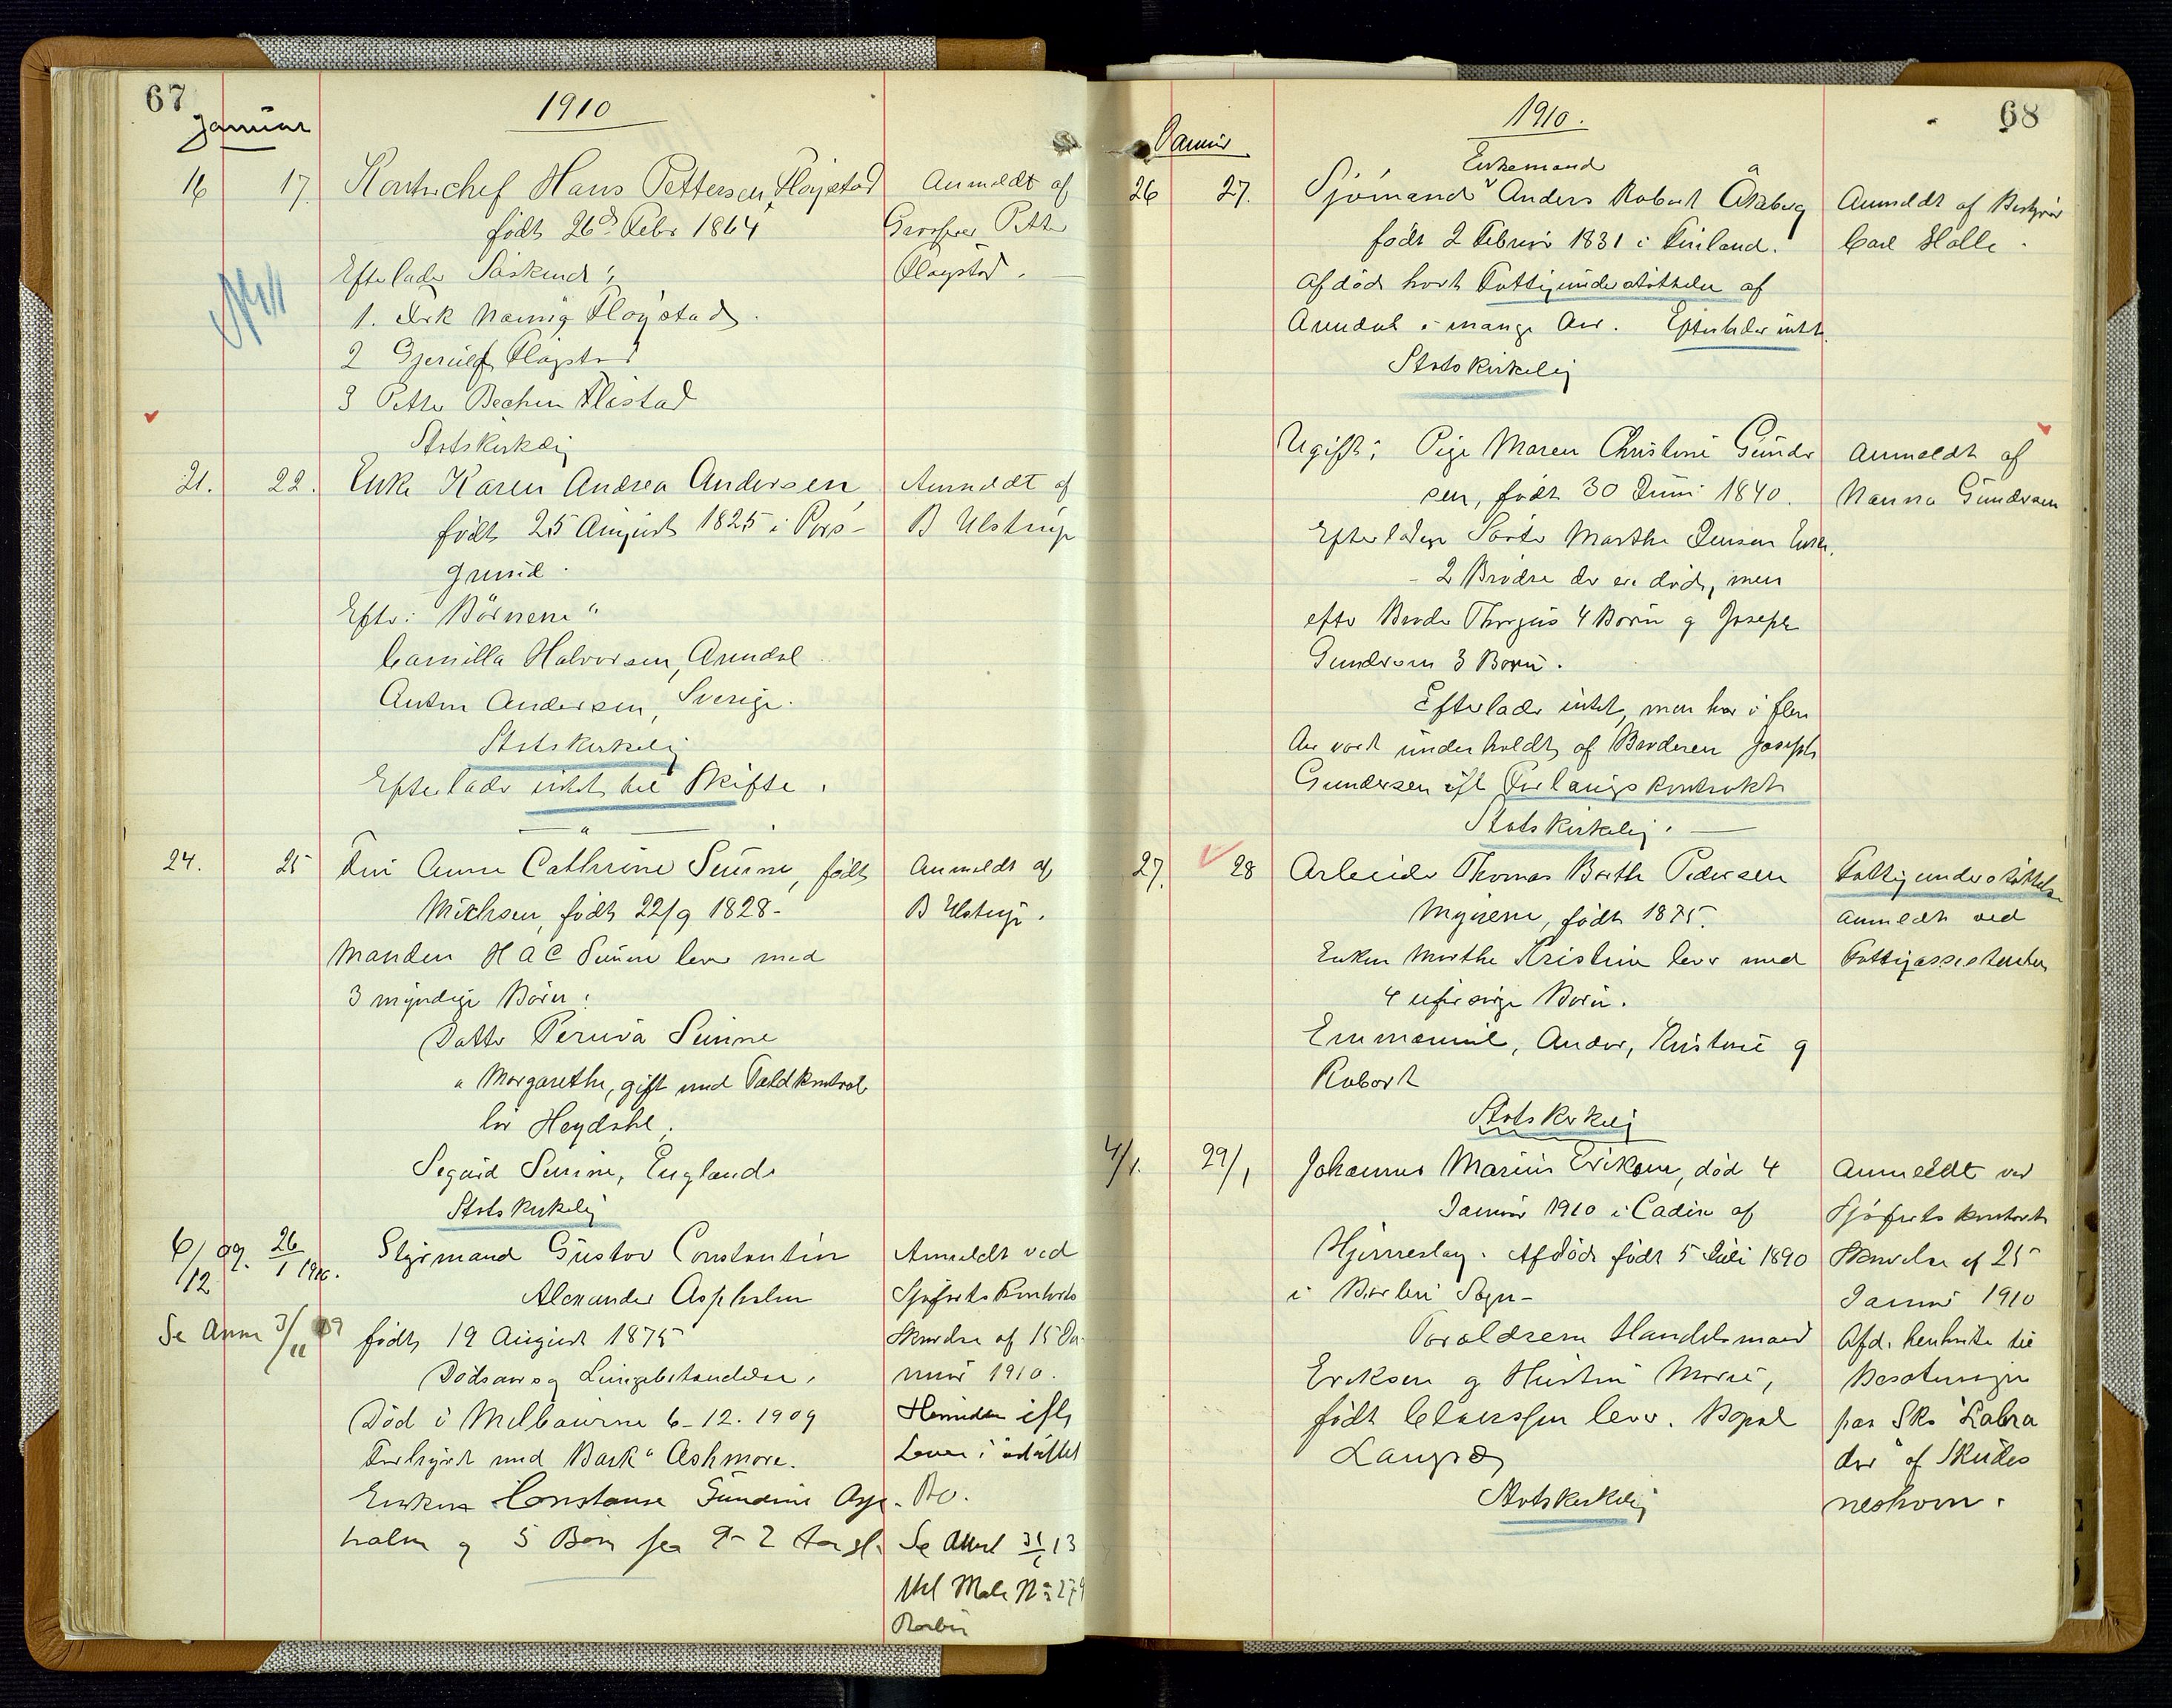 67
Januar
1910
16 17. Kontorchef Hans Pettersen Fløystad
født 26de Febr 1864
Efterlader Søskend:
1. Frk Nanny Fløystad.
2 Gjerulf Fløystad
3 Petter Bechm Fløistad
Statskirkelig
Anmeldt af
Grosserer Petter
Fløystad.
21. 22. Enke Karen Andrea Andersen
født 25 August 1825 i Pors-
grund.
Eftr: Börnene
Camilla Halvorsen, Arendal
Anton Andersen, Sverige.
Statskirkelig
Efterlader intet til Skifte.
Anmeldt af
B Ulstrup
24. 25 Fru Anna Cathrine Sünne, født
født 22/9 1828-
Manden H A C Sünne lever med
3 myndige Börn:
Datter Sünne
" Margarethe, gift med Toldkontrol
lør Heydahl.
Sigurd Sünne, England
Statskirkelig
Anmeldt af
B Ulstrup.
6/12 09. 26/1 1910. Styrmand Gustav Constantin
Alexander Aspholm
Se Anm 3/11 09 født 19 August 1875
Dødsaarsag Lungebetændelse.
Død i Melbourne 6-12.1909
Forhyret med Bark "Ashmore.
Enken Constanse Gundine Asp-
holm og 5 Børn fra 9-2 Aar gl.
Anmeldt ved
Sjøfartskontorets
Skrivelse af 15 Ja-
nuar 1910.
Bo.
Se 31/1 13
No 279
68
Januar
1910.
Enkemand
26 27. Sjømand Anders Robert Åkaberg
født 2 Februar 1831 i Finland.
Afdød havt Fattigunderstøttelse af
Arendal i mange Aar. Efterlader intet.
Statskirkelig
Anmeldt af Bestyrer
Carl Holle.
Ugift: Pige Maren Christine Gunder
sen, født 30 Juni 1840.
Efterlader Søster Marthe Jensen Enke.
- 2 Brødre der ere død, men
efter Broder Thorgius 4 Børn og Joseph
Gundersen 3 Børn.
Efterlader intet, men har i flere
Aar vært underholdt af Broderen Joseph
Gundersen ifl Forlangskontrakt
Statskirkelig.
Anmeldt af
Nanna Gundersen
27. 28 Arbeider Thomas Berthe Pedersen
Myrene, født 1875.
Enken Marthe Kristine lever med
4 uforsørge Børn.
Emmanuel, Ander, Kristine og
Robert
Statskirkelig
Fattigunderstøttelse
anmeldt ved
Fattigassistenten
4/1. 29/1 Johannes Marius Eriksen, død 4
Januar 1910 i Cadix af
Hjerneslag. Afdød født 5 Juli 1890
i Sogn-
Foræeldrene Handelsmand
Eriksen og Hustru Marie,
født Claussen lever. Bopæl
Langsæ
Statskirkelig
Anmeldt ved
Sjøfartskontorets
Skrivelse af 25
Januar 1910
Afd. henhørte til
Besætningen
paa Sk. "Labra
dor" af Skudes
neshavn.